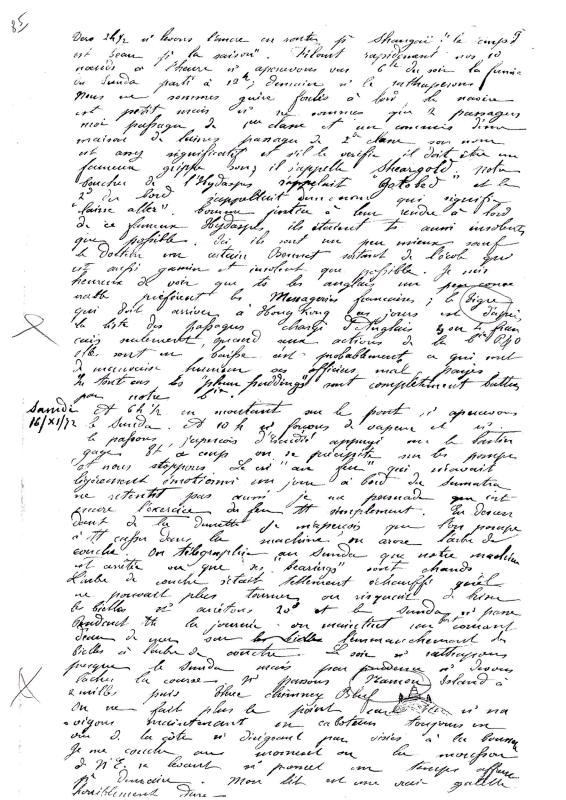 85
Vers 2h ½ ns levons l'ancre en route pr Shangaï "le temps
est beau pr la saison". Filant rapidement nos
nœuds à l'heure ns apercevons vers 6h du soir la fumée
du Sunda parti à 12h; demain ns le rattraperons
Nous ne sommes guère foulés à bord, le navire
est petit mais ns ne sommes que 2 passagers
moi passager de 1re classe et un commis d'une
maison de passager de 2e classe son nom
est assez significatif et s'il le vérifie il doit être un
fameux grippe sous, il s'appelle "Sheargold" notre
de l'Hydaspes s'appelait Gotobed et le
2d du bord s'appellait qui signifie
"laisse aller". Comme justice à leur rendre à bord
de ce fameux Hydaspes, ils étaient ts aussi insolents
que possible. Ici ils sont un peu mieux sauf
le docteur un certain Bonnet sortant de l'école qui
est aussi gamin et insolent que possible. Je suis
heureux de voir que ts les anglais un peu
préfèrent les Messageries françaises; le Tigre
qui doit arriver à Hong Kong ces jours est d'après
la liste des passagers chargé d'Anglais
naturellement, quand aux actions de la Cie P & O
elles sont en baisse est probablement ce qui met
de mauvaise humeur ses officiers mal payés
En tout cas les "plum puddings" sont complètement battus
par notre Cie.
Samedi 16/XI/72
Et 6h ½ en montant sur le pont, ns apercevons
le Sunda. Et 10h ns forçons de vapeur et ns
le passons, j'aperçois appuyé sur le bastin
gage. Et à coup on se précipite sur les pompes
et nous stoppons. Le cri "au feu" qui m'avait
légèrement émotionné un jour à bord du Sumatra
ne retentit pas aussi je me persuade que c'est
encore l'exercice du feu tt simplement. En descen
dant de la dunette je m'aperçois que l'on pompe
à tt casser dans la machine, on arrose l'arbre de
couche. On télégraphie au Sunda que notre machine
est arrêtée vu que ses "bearings" sont chauds
L'arbre de couche s'était tellement échauffé qu'il
ne pouvait plus tourner on risquait de briser
les bielles. Ns arrêtons 20' et le Sunda ns passe
Pendant tte la journée on maintient un courant
d'eau de mer sur l'emmanchement des
bielles à l'arbre de couche. Le soir ns rattrapons
presque le Sunda mais par prudence ns devons
lâcher la course. Ns passons Namoa Island à
4 milles puis Three Chimney Bluff
On ne fait plus le point car ns na
vigons maintenant en caboteur toujours en
vue de la côte ns dirigeant par visées à la boussole
Je me couche au moment ou la mousson
de N.E. se levant ns promet un temps affreux
pr demain. Mon lit est une vraie galette
horriblement dure